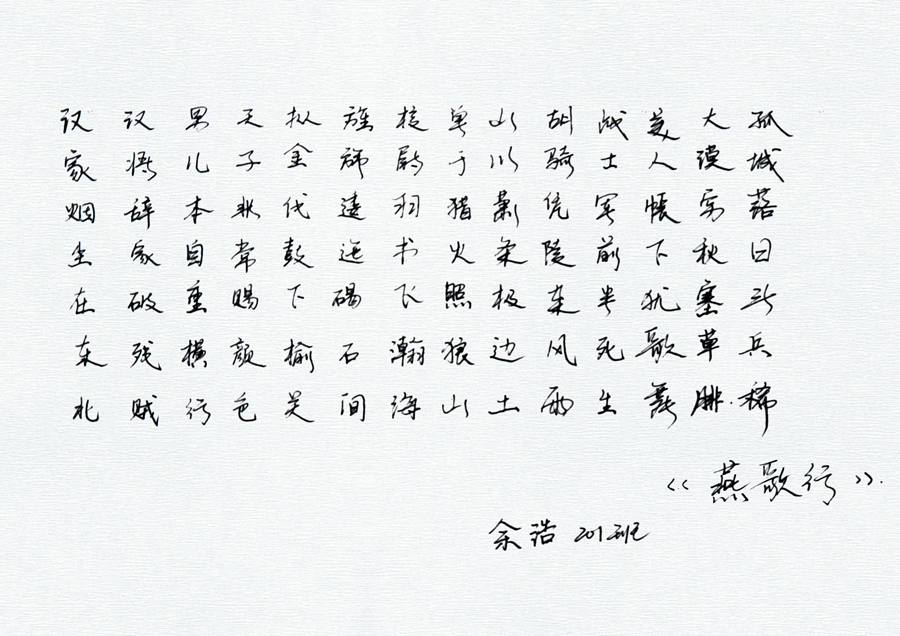 汉家烟尘在东北
汉将辞家破残贼
男儿本自重横行
天子非常赐颜色
摐金伐鼓下榆关
旌旆逶迤碣石间
校尉羽书飞瀚海
单于猎火照狼山
山川萧条极边土
胡骑凭陵杂风雨
战士军前半死生
美人帐下犹歌舞
大漠穷秋塞草腓.
孤城落日斗兵稀
《燕歌行》.
余浩 201班